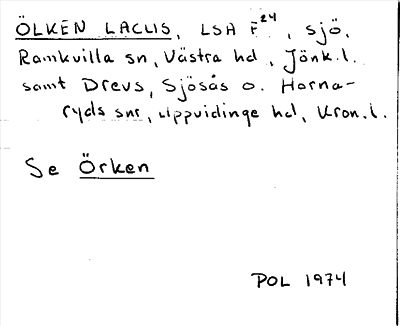 ÖLKEN LACUS, LSA F²⁴, sjö.
Ramkvilla sn, Västra hd, Jönk.l.
samt Drevs, Sjösås o. Horna-
ryds snr, Uppvidinge hd, Kron.l.
Se Örken
POL 1974